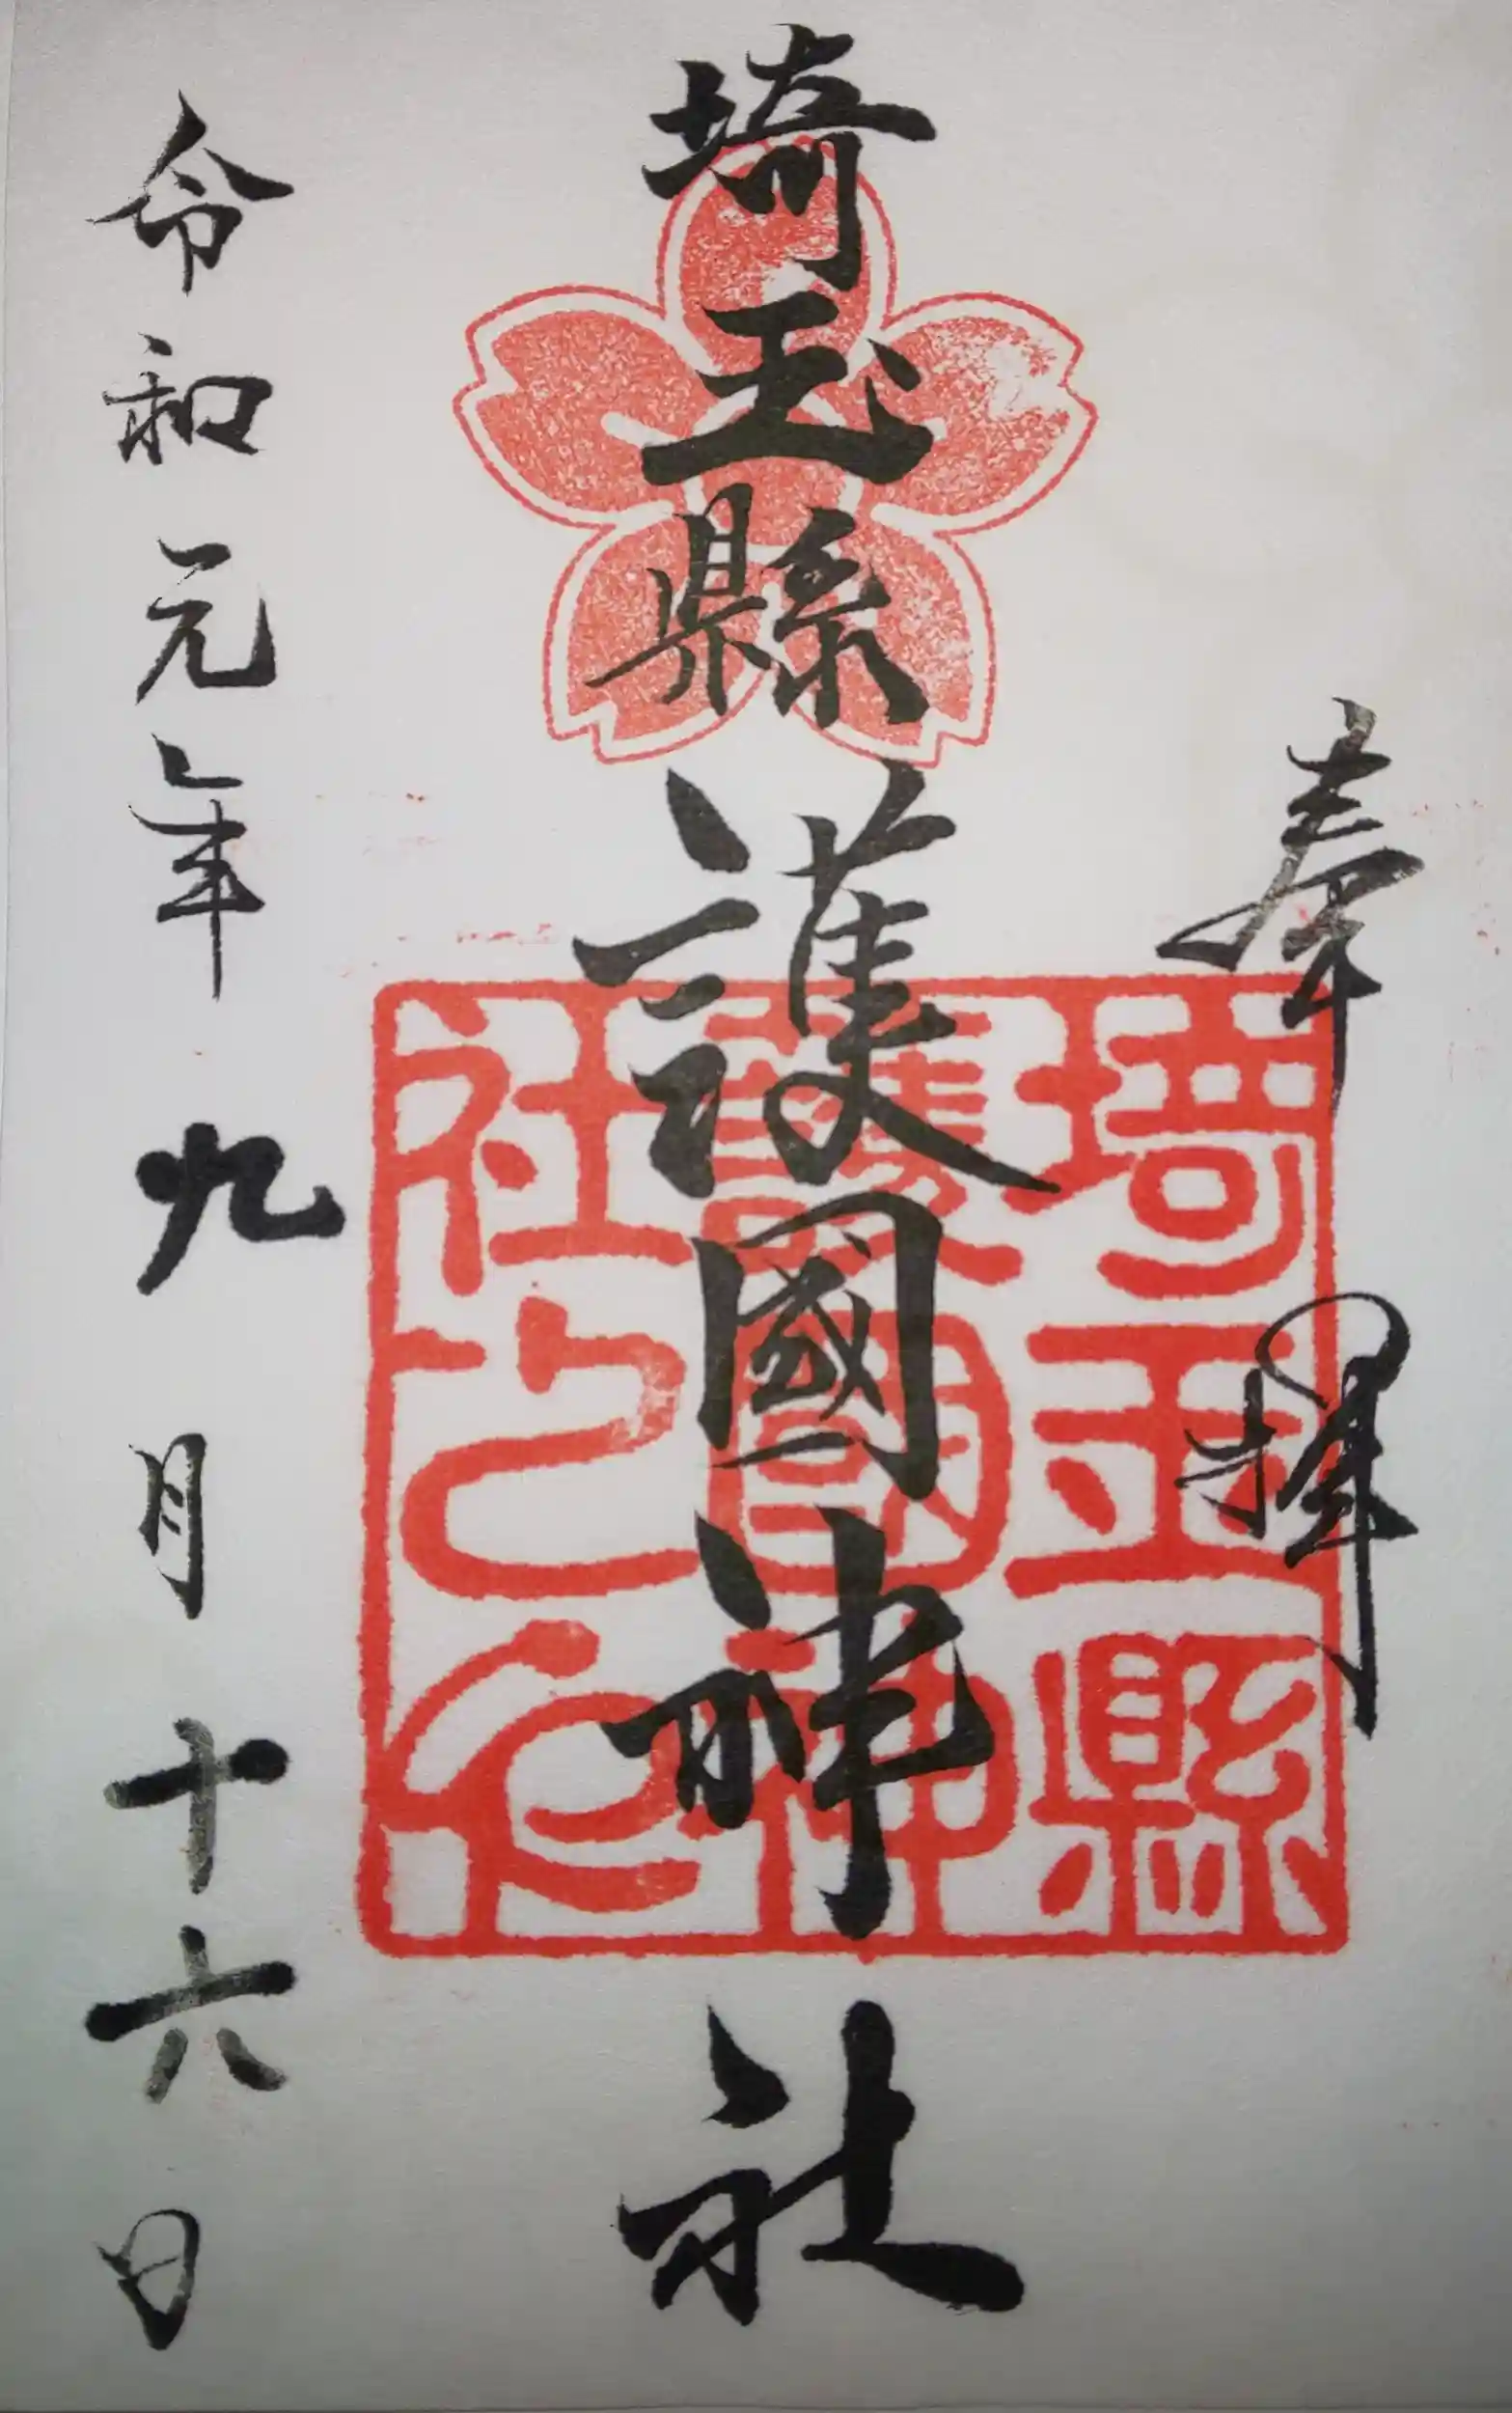 奉拝
埼玉縣護國神社
令和元年九月十六日
埼玉縣
護國神
社之印